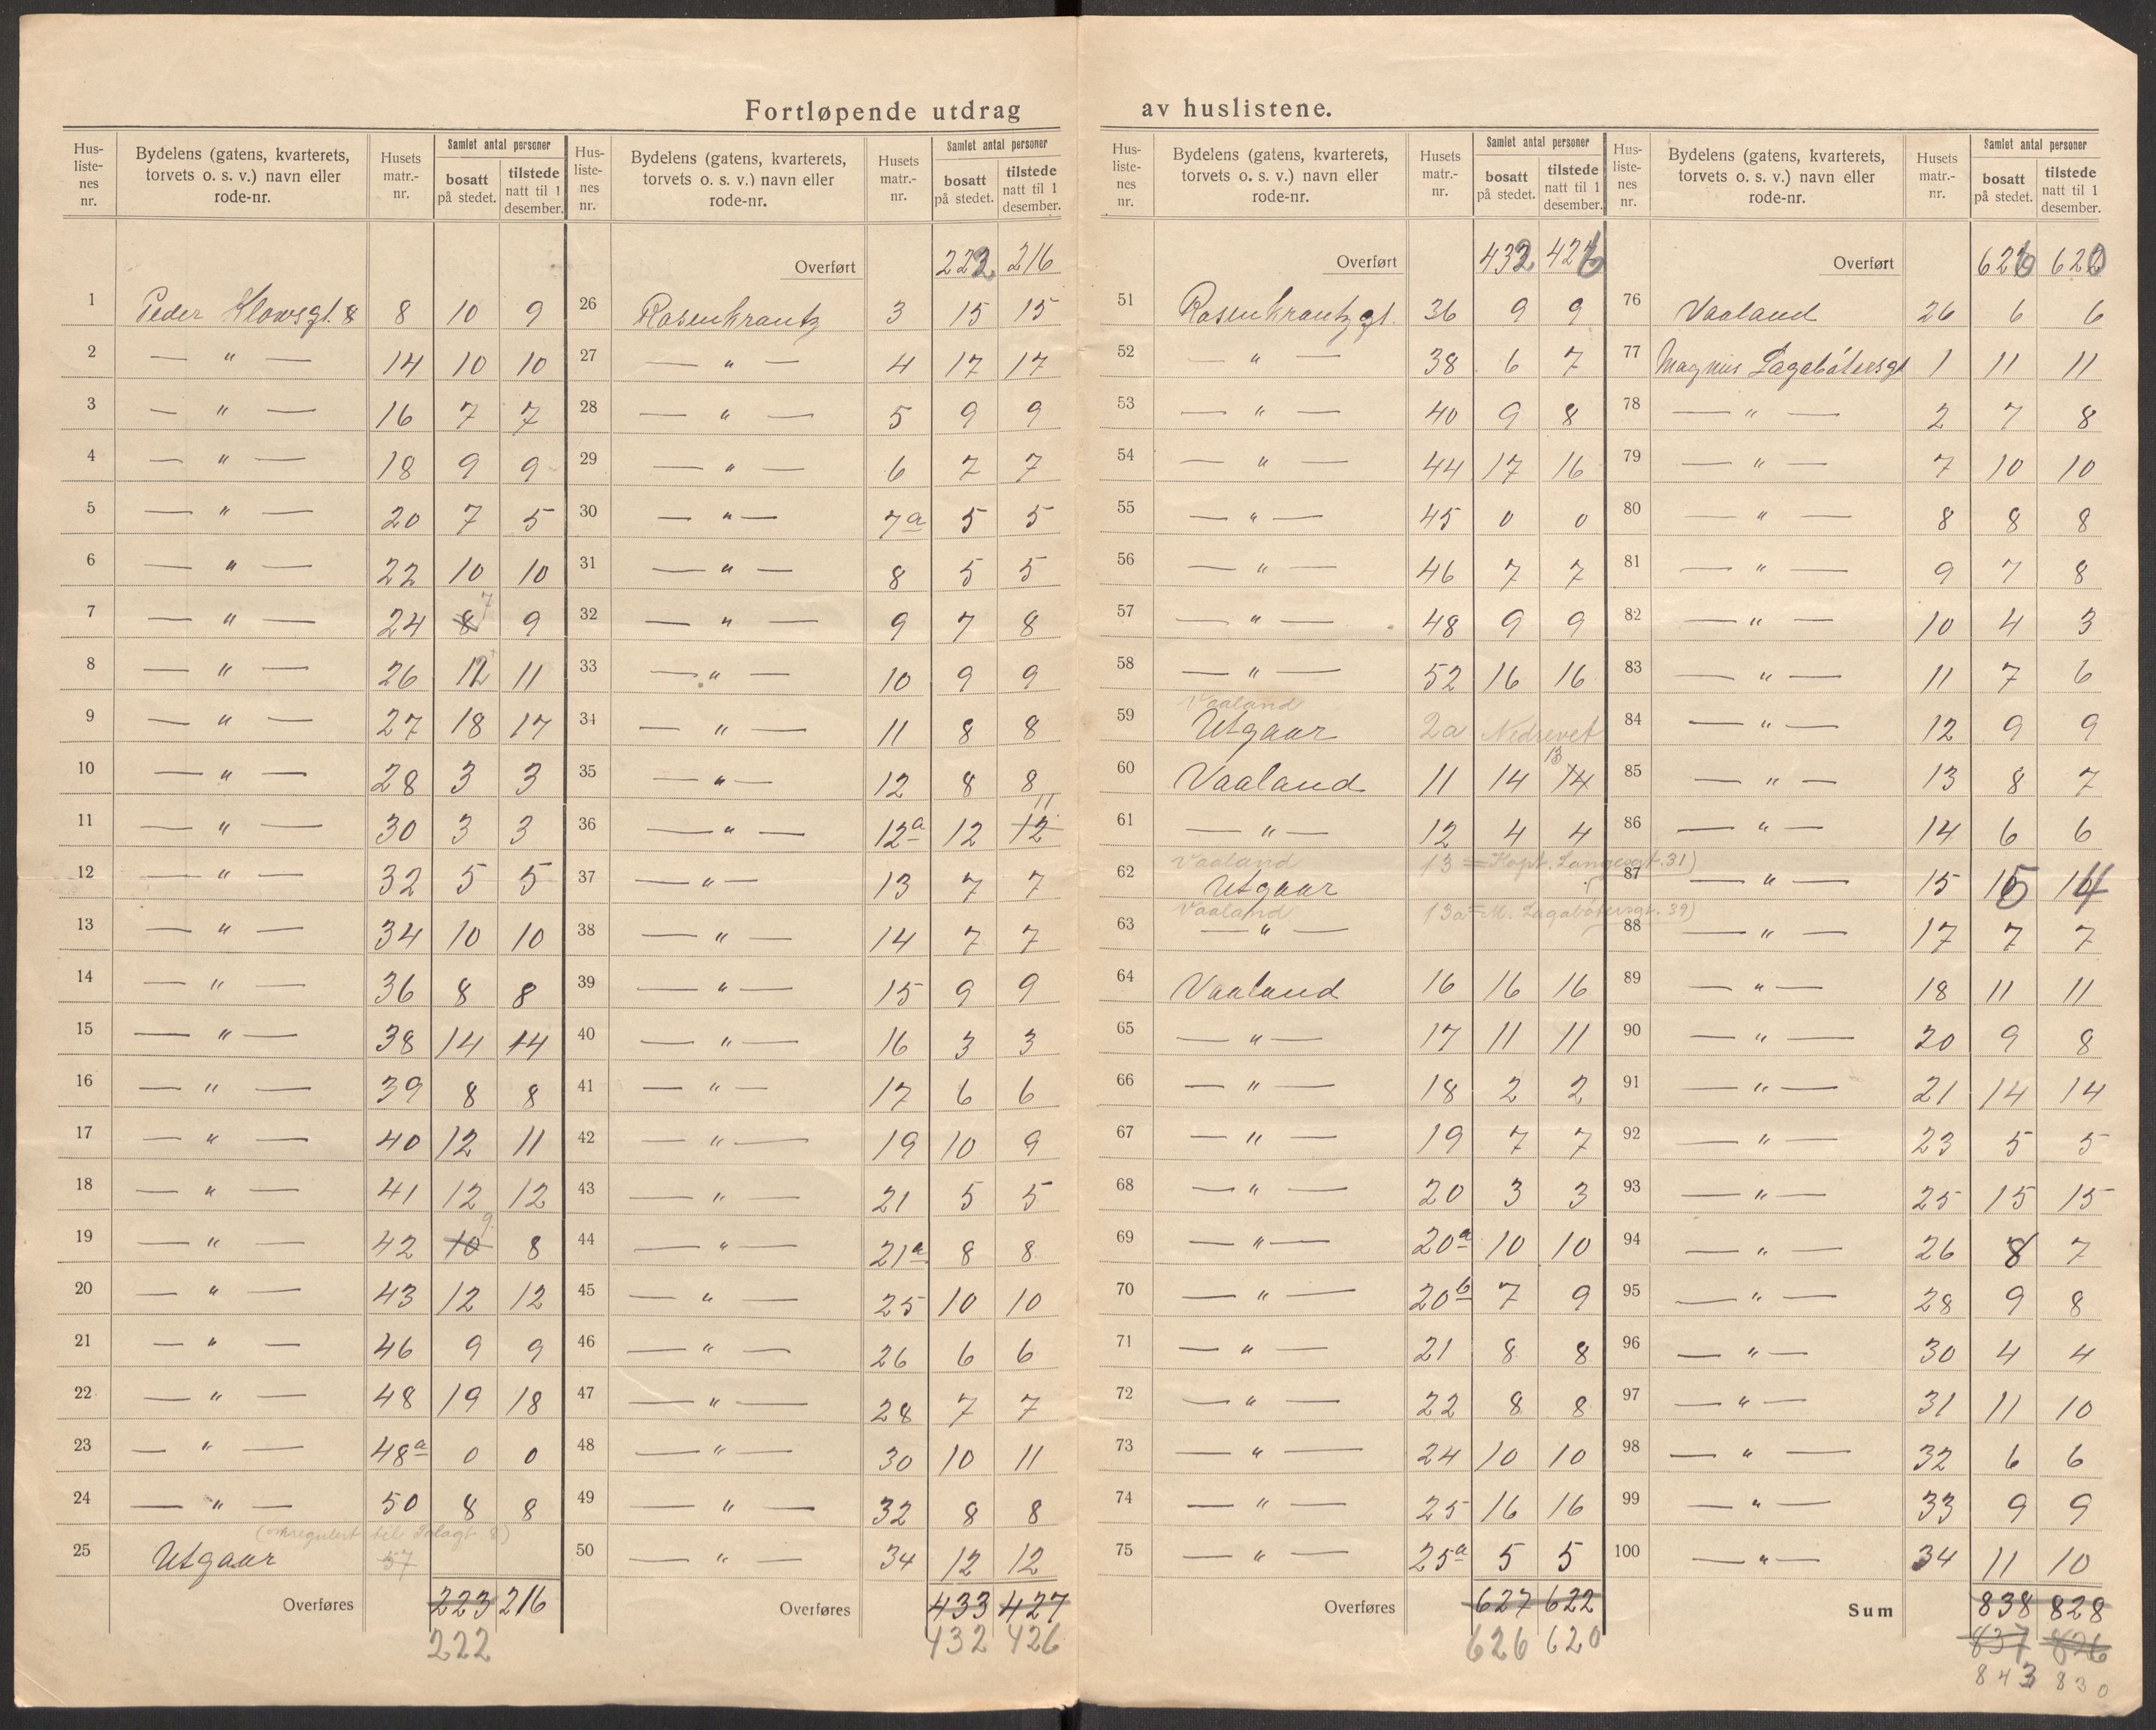 Fortløpende utdrag av huslistene.
Hus-listenes nr. | Bydelens (gatens, kvarterets, torvets o. s. v.) navn eller rode-nr. | Husets matr.-nr. | Samlet antal personer bosatt på stedet. | tilstede natt til 1 desember.
1 Peder Klowsgt. 8 8 10 9
2 — " — 14 10 10
3 — " — 16 7 7
4 — " — 18 9 9
5 — " — 20 7 5
6 — " — 22 10 10
7 — " — 24 8 7 9
8 — " — 26 12 11
9 — " — 27 18 17
10 — " — 28 3 3
11 — " — 30 3 3
12 — " — 32 5 5
13 — " — 34 10 10
14 — " — 36 8 8
15 — " — 38 14 14
16 — " — 39 8 8
17 — " — 40 12 11
18 — " — 41 12 12
19 — " — 42 10 9 8
20 — " — 43 12 12
21 — " — 46 9 9
22 — " — 48 19 18
23 — " — 48a 0 0
24 — " — 50 8 8
(omregulert til 8)
25 Utgaar 57
Overføres 223 216
222
Hus-listenes nr. | Bydelens (gatens, kvarterets, torvets o. s. v.) navn eller rode-nr. | Husets matr.-nr. | Samlet antal personer bosatt på stedet. | tilstede natt til 1 desember.
Overført 222 216
26 Rosenkrantz 3 15 15
27 — " — 4 17 17
28 — " — 5 9 9
29 — " — 6 7 7
30 — " — 7a 5 5
31 — " — 8 5 5
32 — " — 9 7 8
33 — " — 10 9 9
34 — " — 11 8 8
35 — " — 12 8 8
36 — " — 12a 12 12 11
37 — " — 13 7 7
38 — " — 14 7 7
39 — " — 15 9 9
40 — " — 16 3 3
41 — " — 17 6 6
42 — " — 19 10 9
43 — " — 21 5 5
44 — " — 21a 8 8
45 — " — 25 10 10
46 — " — 26 6 6
47 — " — 28 7 7
48 — " — 30 10 11
49 — " — 32 8 8
50 — " — 34 12 12
Overføres 433 427
432 426
Hus-listenes nr. | Bydelens (gatens, kvarterets, torvets o. s. v.) navn eller rode-nr. | Husets matr.-nr. | Samlet antal personer bosatt på stedet. | tilstede natt til 1 desember.
Overført 432 426
51 Rosenkrantz gt. 36 9 9
52 — " — 38 6 7
53 — " — 40 9 8
54 — " — 44 17 16
55 — " — 45 0 0
56 — " — 46 7 7
57 — " — 48 9 9
58 — " — 52 16 16
Vaaland
59 Utgaar 2a Nedrevet
60 Vaaland 11 14 14 13
61 — " — 12 4 4
Vaaland 13 = Kapt. Langesgt. 31)
62 Utgaar
Vaaland 13a = M. Lagabøtersgt. 39)
63 — " —
64 Vaaland 16 16 16
65 — " — 17 11 11
66 — " — 18 2 2
67 — " — 19 7 7
68 — " — 20 3 3
69 — " — 20a 10 10
70 — " — 20b 7 9
71 — " — 21 8 8
72 — " — 22 8 8
73 — " — 24 10 10
74 — " — 25 16 16
75 — " — 25a 5 5
Overføres 627 622
626 620
Hus-listenes nr. | Bydelens (gatens, kvarterets, torvets o. s. v.) navn eller rode-nr. | Husets matr.-nr. | Samlet antal personer bosatt på stedet. | tilstede natt til 1 desember.
Overført 626 620
76 Vaaland 26 6 6
77 Magnus Lagabøtersgt 1 11 11
78 — " — 2 7 8
79 — " — 7 10 10
80 — " — 8 8 8
81 — " — 9 7 8
82 — " — 10 4 3
83 — " — 11 7 6
84 — " — 12 9 9
85 — " — 13 8 7
86 — " — 14 6 6
87 — " — 15 15 14
88 — " — 17 7 7
89 — " — 18 11 11
90 — " — 20 9 8
91 — " — 21 14 14
92 — " — 23 5 5
93 — " — 25 15 15
94 — " — 26 8 7
95 — " — 28 9 8
96 — " — 30 4 4
97 — " — 31 11 10
98 — " — 32 6 6
99 — " — 33 9 9
100 — " — 34 11 10
Sum 838 828
837 826
843 830